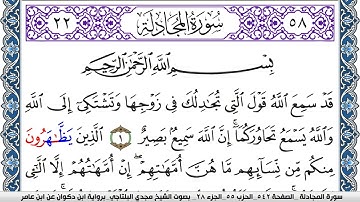 ٢٢ سُورَةُ المُجَادلَة ٥٨
بِسْمِ اللَّهِ الرَّحْمَٰنِ الرَّحِيمِ
قَدْ سَمِعَ اللَّهُ قَوْلَ الَّتِي تُجَٰدِلُكَ فِي زَوْجِهَا وَتَشْتَكِي إِلَى اللَّهِ
وَاللَّهُ يَسْمَعُ تَحَاوُرَكُمَا إِنَّ اللَّهَ سَمِيعٌ بَصِيرٌ ١ الَّذِينَ يَظَّٰهَرُونَ
مِنكُم مِّن نِّسَآئِهِم مَّا هُنَّ أُمَّهَٰتِهِمْ إِنْ أُمَّهَٰتُهُمْ إِلَّا الَّٰٓـِٔي
سورة المجادلة _ الصفحة ٥٤٢ الحزب ٥٥ الجزء ٢٨ _ بصوت الشيخ مجدي البلتاجي _ برواية ابن ذكوان عن ابن عامر